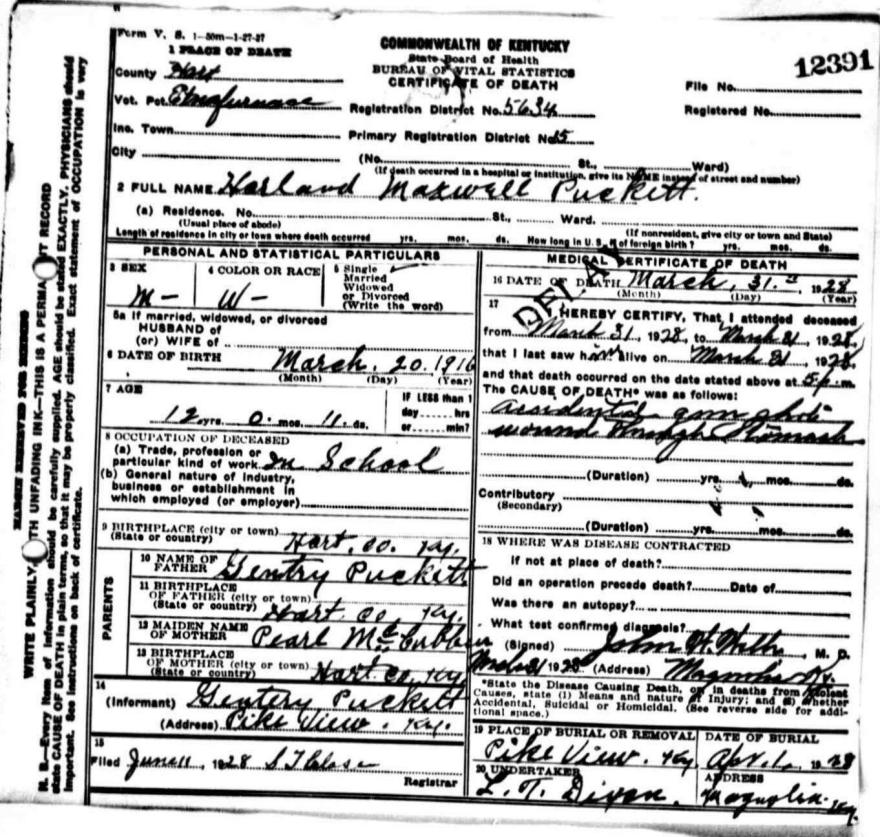 Form V. S. 1—50m—1-27-27
COMMONWEALTH OF KENTUCKY
State Board of Health
BUREAU OF VITAL STATISTICS
CERTIFICATE OF DEATH
12391
File No.
Registered No.
1 PLACE OF DEATH
County Hart
Vot. Pct. Etnafurnace
Registration District No. 5634
Inc. Town
Primary Registration District No. 15
City
(No. St., Ward)
(If death occurred in a hospital or institution, give its NAME instead of street and number)
2 FULL NAME Harland Maxwell Puckett.
(a) Residence. No. St., Ward.
(Usual place of abode) (If nonresident, give city or town and State)
Length of residence in city or town where death occurred yrs. mos. ds. How long in U. S. if of foreign birth? yrs. mos. ds.
PERSONAL AND STATISTICAL PARTICULARS
3 SEX
M—
4 COLOR OR RACE
W—
5 Single
Married
Widowed
or Divorced
(Write the word)
5a If married, widowed, or divorced
HUSBAND of
(or) WIFE of
6 DATE OF BIRTH March. 20. 1916
(Month) (Day) (Year)
7 AGE
12 yrs. 0. mos. 11. ds.
IF LESS than 1
day hrs
or min?
8 OCCUPATION OF DECEASED
(a) Trade, profession or
particular kind of work In School
(b) General nature of industry,
business or establishment in
which employed (or employer)
9 BIRTHPLACE (city or town)
(State or country) Hart. co. Ky.
PARENTS
10 NAME OF
FATHER Gentry Puckett
11 BIRTHPLACE
OF FATHER (city or town)
(State or country) Hart. co. Ky.
12 MAIDEN NAME
OF MOTHER Pearl McCubbin
13 BIRTHPLACE
OF MOTHER (city or town)
(State or country) Hart co. Ky.
14
(Informant) Gentery Puckett
(Address) Pike View. Ky.
15
Filed June 11, 1928
Registrar
MEDICAL CERTIFICATE OF DEATH
16 DATE OF DEATH March, 31. st, 1928
(Month) (Day) (Year)
DELAY
17
I HEREBY CERTIFY, That I attended deceased
from March 31, 1928, to March 31, 1928,
that I last saw him alive on March 31, 1928.
and that death occurred on the date stated above at 5 p. m.
The CAUSE OF DEATH* was as follows:
accidental gun shot
wound through Stomach
(Duration) yrs. mos. ds.
Contributory
(Secondary)
(Duration) yrs. mos. ds.
18 WHERE WAS DISEASE CONTRACTED
If not at place of death?
Did an operation precede death? Date of
Was there an autopsy?
What test confirmed diagnosis?
(Signed) John H., M. D.
1928 (Address) Magnolia Ky.
*State the Disease Causing Death, or in deaths from Violent
Causes, state (1) Means and nature of Injury; and (2) whether
Accidental, Suicidal or Homicidal. (See reverse side for addi-
tional space.)
19 PLACE OF BURIAL OR REMOVAL
Pike View. Ky
DATE OF BURIAL
Apr. 1. 1928
20 UNDERTAKER
L. T. Dixon.
ADDRESS
Magnolia. Ky.
MARGIN RESERVED FOR BINDING
WRITE PLAINLY, WITH UNFADING INK—THIS IS A PERMANENT RECORD
N. B.—Every item of information should be carefully supplied. AGE should be stated EXACTLY. PHYSICIANS should
state CAUSE OF DEATH in plain terms, so that it may be properly classified. Exact statement of OCCUPATION is very
important. See instructions on back of certificate.